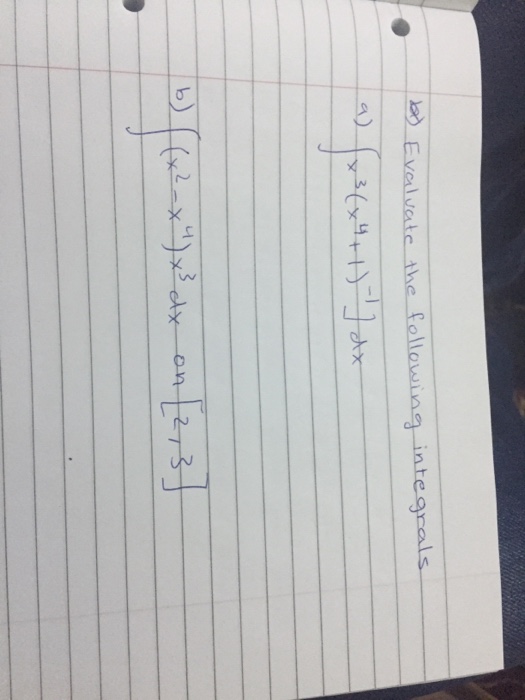 Evaluate the following integrals
a) ∫x³(x⁴+1)⁻¹]dx
b) ∫(x²-x⁴)x³dx on [2,3]